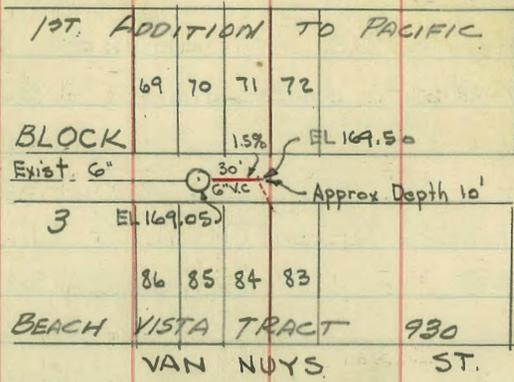 1ST. ADDITION TO PACIFIC
69 70 71 72
BLOCK 1.5% EL 169.50
Exist. 6" 30' 6" V.C Approx Depth 10'
3 EL 169.05
86 85 84 83
BEACH VISTA TRACT 930
VAN NUYS ST.